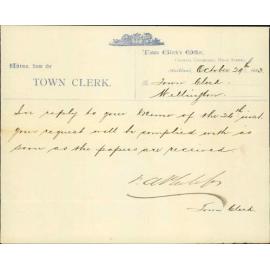 Town Clerk's Office,
Council Chambers, High Street,
Memo. from the
TOWN CLERK.
Auckland, October 29th
To Town Clerk
Wellington
In reply to your Memo of the 26th inst.
your request will be complied with as
soon as the papers are received
Town Clerk